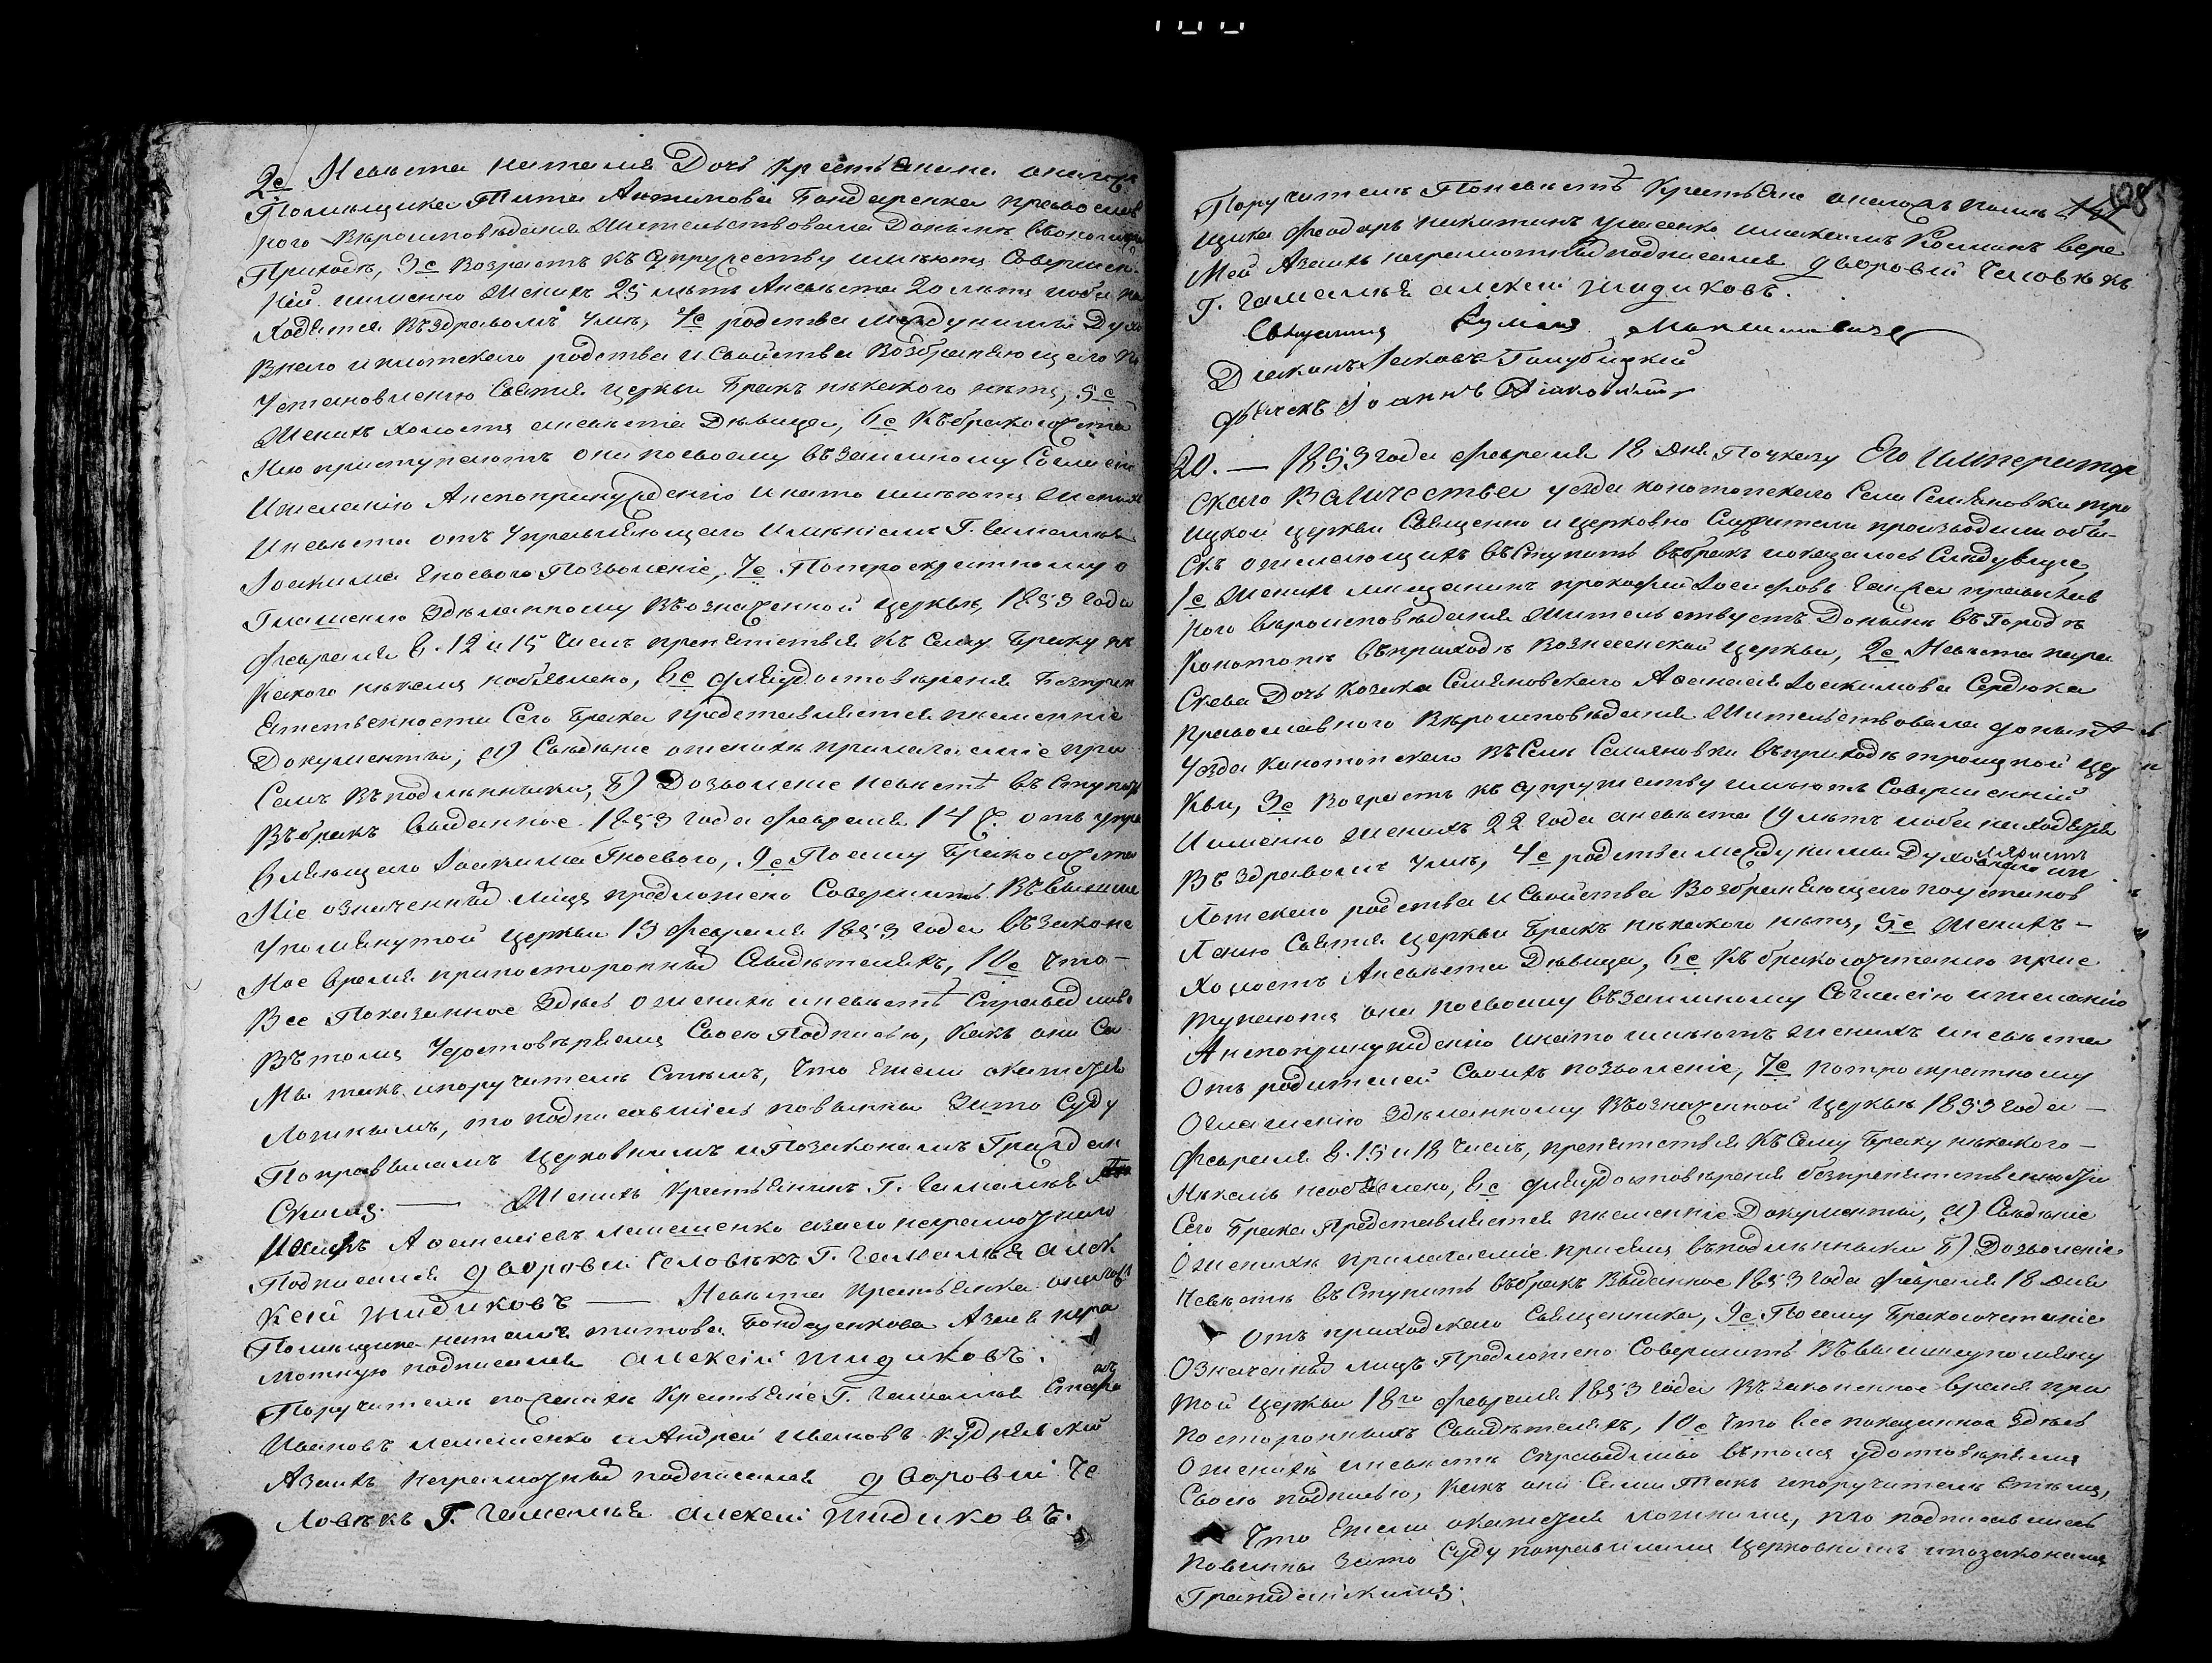 2е Невьста Наталія Дочь Крестьянина оногожъ
Помьщика Тита Антипова Бондаренка православ
ного Вьроисповьданія жительствовала Донынь
Приходь, 3е Возрасть къ супружеству имьютъ Совершен
ній именно Женихъ 25 льтъ Аневьста 20 льтъ иоба на
ходятся Въздравомъ умь, 4е родства между ними Духо
внаго иплотскаго родства и Свойства Возбраняющаго по
Установленію Святія церкви Бракъ никакого ньтъ, 5е
Женихъ холостъ аневьста Дьвица, 6е Къбракосочета
нію приступаютъ они посвоему вьзаимному Согласію
Ижеланію Анепопринужденію инато имьютъ Женихъ
Иневьста отъ Управляющаго Имьніемъ Г. Гамалья
Іоакима Гноевого Позволеніе, 7е Потроекратному о
Глашенію Здьланному Въозначенной церквь 1853 года
февраля 8. 12 и 15 Числъ препятствія Къ Сему Браку ни
Какого никемъ необявлено, 8е дляудостовьренія Безпреп
ятственности Сего Брака представляется писменніе
Документы, а) Сьвдьніе оженихь прилагаеміе при
Семъ Въподлинникь, б) Дозволеніе невьсть въ Ступить
Въбракъ Выданное 1853 года февраля 14 д. отъ упра
вляющаго Іоакима Гноевого, 9е Посему Бракосочета
Ніе означенныхъ лицъ предложено Совершить Въ выше
упомянутой церкви 15 февраля 1853 года въ законе
Ное время припостороннихъ Свидьтеляхъ, 10е Что —
Все Показанное Здьсь ожених иневьсть Справедливо
Въ томъ Удостовьряемъ Своею Подписью, Какъ они Са
Мы такъ ипоручители Стьмъ, Что Ежели окажется
Ложнымъ, то подписавшіесь повинны Зато Суду
Поправиламъ Церковнимъ иПозаконамъ Граждан
Скимъ. — Женихъ Крестьянинъ Г. Гамалья
Аөанасіевъ Лемешенко азаего неграмотнаго
Подписался дворовій Человькъ Г. Гамалья алек
Кьй жидиковъ — Невьста Крестьянка оногожъ
Помьщика наталія титова Бондаренкова Азаея негра
мотную подписался алексьй жидиковъ.
Поручители поженихь Крестьяне Г. Гамалья
Ивановъ Лемешенко и Андрей Ивановъ Кудрявскій
Азаихъ неграмотныхъ подписался дворовій Че
ловькъ Г. Гамалья алексьй жидиковъ.
Поручители Поневьсть Крестьяне оногожъ помь 108
щика Феодоръ никитинъ
Азаихъ неграмотныхъ подписался дворовій Человькъ
Г. Гамалья алексьй жидиковъ.
Священникъ Максимовичъ
Діаконъ Іаковъ Голубицкій
Дьячекъ Іоаннъ
20. — 1853 года февраля 18 дня Поуказу Его Император
скаго Величества уезда конотопскаго Села Семяновки тро
ицкой церкви Священно и церковно Служители производили обы
скъ ожелающихъ въСтупить въбракъ иоказалось Слѣдующе,
1е Женихъ мищанинъ прокофій Іосифовъ православ
ного вьроисповьданія Жительствуетъ Донынь въ Городь
Конотопь въприходь Вознесенской церкви, 2е Невьста пара
Скева Дочь козака Семяновского Аөанасія Іоакимова Сердюка
православного Вьроисповьданія Жительствовала донынь
Уезда конотопскаго въСель Семяновки въприходь троицкой цер
кви, 3е Возрасть къ супружеству имьютъ Совершенній
Именно женихъ 22 года аневьста 19 льтъ иоба находятся
Въ Здравомъ умь, 4е родства между ними Духовнаго ип
лотскаго родства и Свойства Возбраняющаго поустанов
ленію Святія церкви Бракъ никакого ньтъ, 5е Женихъ —
Холостъ Аневьста Дьвица, 6е Къ бракосочетанію прис
тупаютъ они посвоему въ заимному Согласію ижеланію
Анепопринужденію инато имьютъ женихъ иневьста
Отъ родителей Своихъ позволеніе, 7е потроекратному
Оглашенію здьланному Въозначенной церквь 1853 года —
февраля 8. 15 и 18 Числъ, препятствія Къ Сему Браку никакого —
Никемъ необявлено, 8е дляудостовьренія безпрепятственности
Сего Брака Представляется писменніе Документы, а) Сьвдьніе
Ожених прилагаеміе присемъ въподлинникь б) Дозволеніе
Невьсть въ Ступить въбракъ Выданное 1853 года февраля 18 дня
Отъ приходскаго Священника, 9е Посему Бракосочетаніе
Означенныхъ лицъ Предложено Совершить Въвышеупомяну
той церкви 18го февраля 1853 года въ законенное время при
постороннихъ Свидьтеляхъ, 10е Что все показанное здьсь
Ожених иневьсть справедливо вътомъ удостовьряемъ
Своею подписью, Какъ они Сами Такъ ипоручители стьмъ,
Что Ежели окажется ложнимъ, то подписавшіесь
повинны Зато Суду поправиламъ Церковнимъ ипозаконамъ
Гражданскимъ.